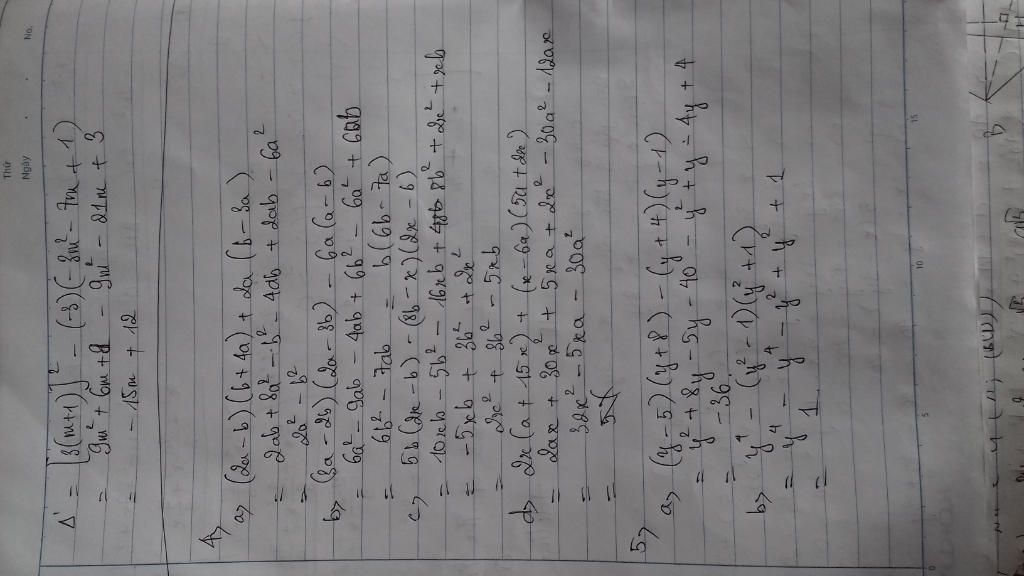 Thứ
Ngày
No.
Δ' = [3(m+1)]² - (-3)(-3m² - 7m + 1)
= 9m² + 6m + 9 - 9m² - 21m + 3
= -15m + 12
4>
a> (2a - b)(b + 4a) + 2a (b - 3a)
= 2ab + 8a² - b² - 4ab + 2ab - 6a²
= 2a² - b²
b> (3a - 2b)(2a - 3b) - 6a(a - b)
= 6a² - 9ab - 4ab + 6b² - 6a² + 6ab
= 6b² - 7ab = b(6b - 7a)
c> 5b(2x - b) - (8b - x)(2x - b)
= 10xb - 5b² - 16xb + 8b² + 2x² + xb
= -5xb + 3b² + 2x²
= 2x² + 3b² - 5xb
d> 2x(a + 15x) + (x - 6a)(5a + 2x)
= 2ax + 30x² + 5xa + 2x² - 30a² - 12ax
= 32x² - 5xa - 30a²
=
5>
a> (y - 5)(y + 8) - (y + 4)(y - 1)
= y² + 8y - 5y - 40 - y² + y - 4y + 4
= -36
b> y⁴ - (y² - 1)(y² + 1)
= y⁴ - y⁴ - y² + y² + 1
= 1.
0
5
10
15
B